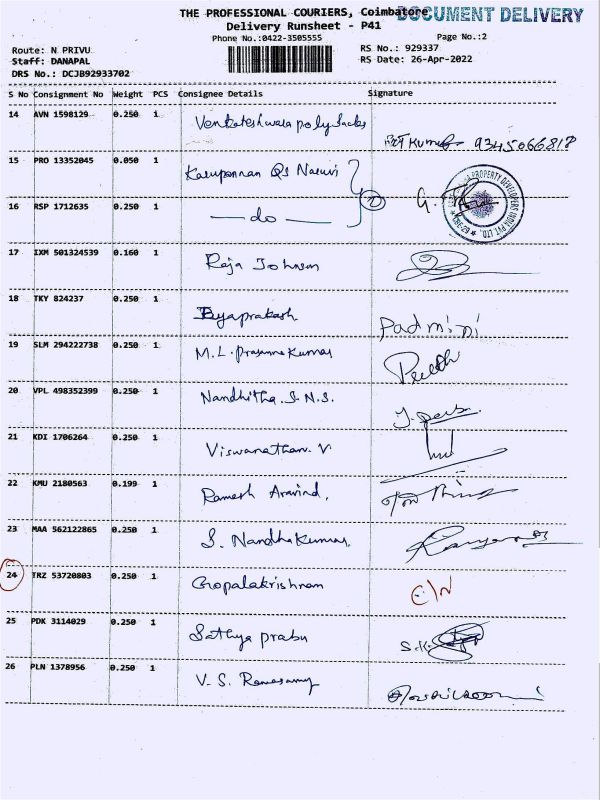 THE PROFESSIONAL COURIERS, Coimbatore DOCUMENT DELIVERY
Delivery Runsheet - P41
Phone No.:0422-3505555 Page No.:2
Route: N PRIVU RS No.: 929337
Staff: DANAPAL RS Date: 26-Apr-2022
DRS No.: DCJB92933702
S No Consignment No Weight PCS Consignee Details Signature
14 AVN 1598129 0.250 1 Venkateshwara poly Sacks Kumar 9345066818
15 PRO 13352045 0.050 1 Karuponnan G.
16 RSP 1712635 0.250 1 — do —
17 IXM 501324539 0.160 1 Raja Johnson
18 TKY 824237 0.250 1 Jayaprakash Padmini
19 SLM 294222738 0.250 1 M. L. Prasanna Kumar
20 VPL 498352399 0.250 1 Nandhitha. S. N. S.
21 KDI 1706264 0.250 1 Viswanathan. V
22 KMU 2180563 0.199 1 Ramesh Aravind.
23 MAA 562122865 0.250 1 S. Nandha Kumar
24 TRZ 53720803 0.250 1 Gopalakrishnan C/N
25 PDK 3114029 0.250 1 Sathya prabu
26 PLN 1378956 0.250 1 V. S. Ramasamy